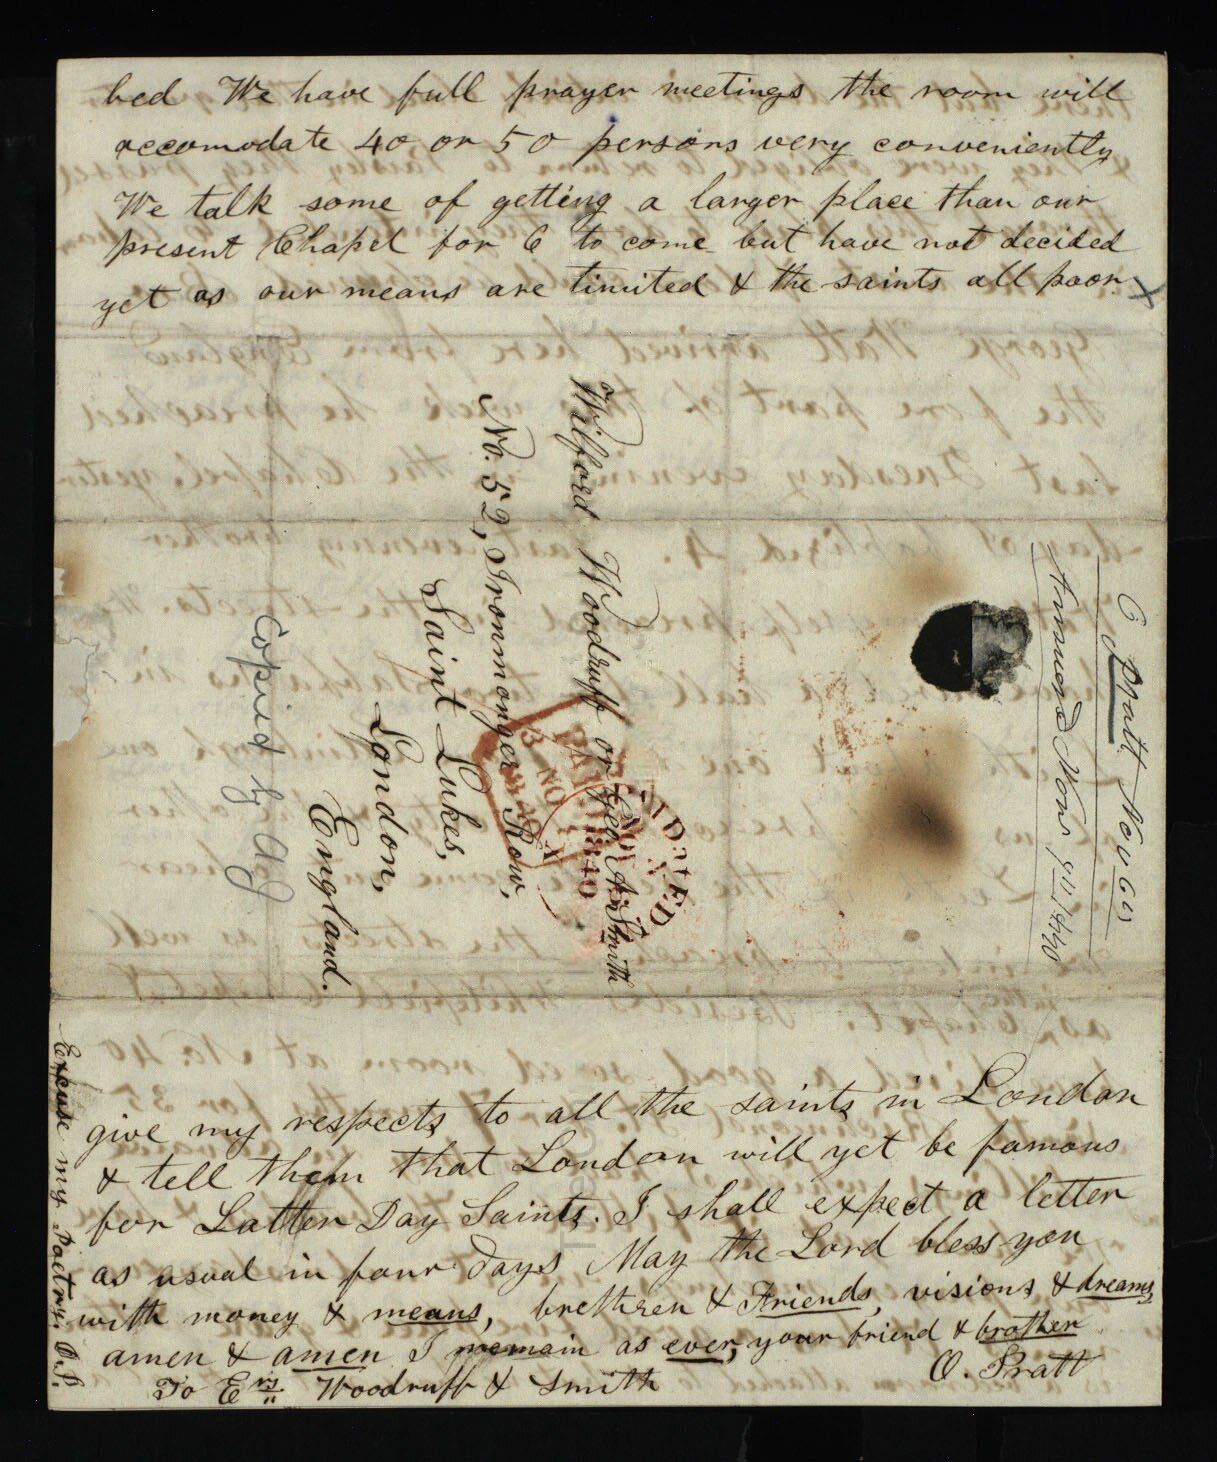 bed We have full prayer meetings the room will
accomodate 40 or 50 persons very conveniently
We talk some of getting a larger place than our
present Chapel for 6 to come but have not decided
yet as our means are limited & the saints all poor X
Wilford Woodruff or Geo A. Smith
No. 52, Ironmonger Row,
Saint Lukes,
London,
England.
Copied by AG
O Pratt Nov 6th
Answered Nov 9th 1840
PAID
give my respects to all the saints in London
& tell them that London will yet be famous
for Latter Day Saints. I shall expect a letter
as usual in four days May the Lord bless you
with money & means, brethren & Friends, visions & dreams,
amen & amen I remain as ever, your friend & brother
O. Pratt
To Ers Woodruff & Smith
Excuse my Poetry. O. P.